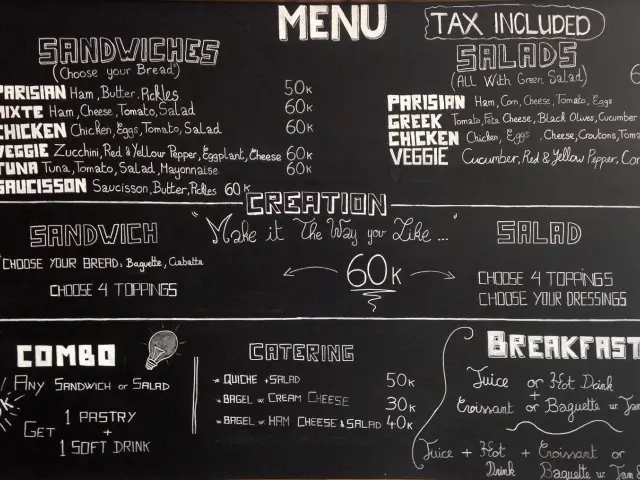 MENU
TAX INCLUDED
SANDWICHES
(Choose your Bread)
PARISIAN Ham, Butter, Pickles 50K
MIXTE Ham, Cheese, Tomato, Salad 60K
CHICKEN Chicken, Eggs, Tomato, Salad 60K
VEGGIE Zucchini, Red & Yellow Pepper, Eggplant, Cheese 60K
TUNA Tuna, Tomato, Salad, Mayonnaise 60K
SAUCISSON Saucisson, Butter, Pickles 60K
SALADS
(All With Green Salad)
PARISIAN Ham, Corn, Cheese, Tomato, Eggs
GREEK Tomato, Feta Cheese, Black Olives, Cucumber
CHICKEN Chicken, Eggs, Cheese, Croutons, Toma
VEGGIE Cucumber, Red & Yellow Pepper, Cor
CREATION
"Make it The Way you Like..."
60K
SANDWICH
CHOOSE YOUR BREAD: Baguette, Ciabatta
CHOOSE 4 TOPPINGS
SALAD
CHOOSE 4 TOPPINGS
CHOOSE YOUR DRESSINGS
COMBO
ANY SANDWICH or SALAD
GET 1 PASTRY
+
1 SOFT DRINK
CATERING
QUICHE + SALAD 50K
BAGEL w. CREAM CHEESE 30K
BAGEL w. HAM CHEESE & SALAD 40K
BREAKFAST
Juice or Hot Drink
+
Croissant or Baguette w. Jam
Juice + Hot Drink + Croissant or Baguette w. Jam &